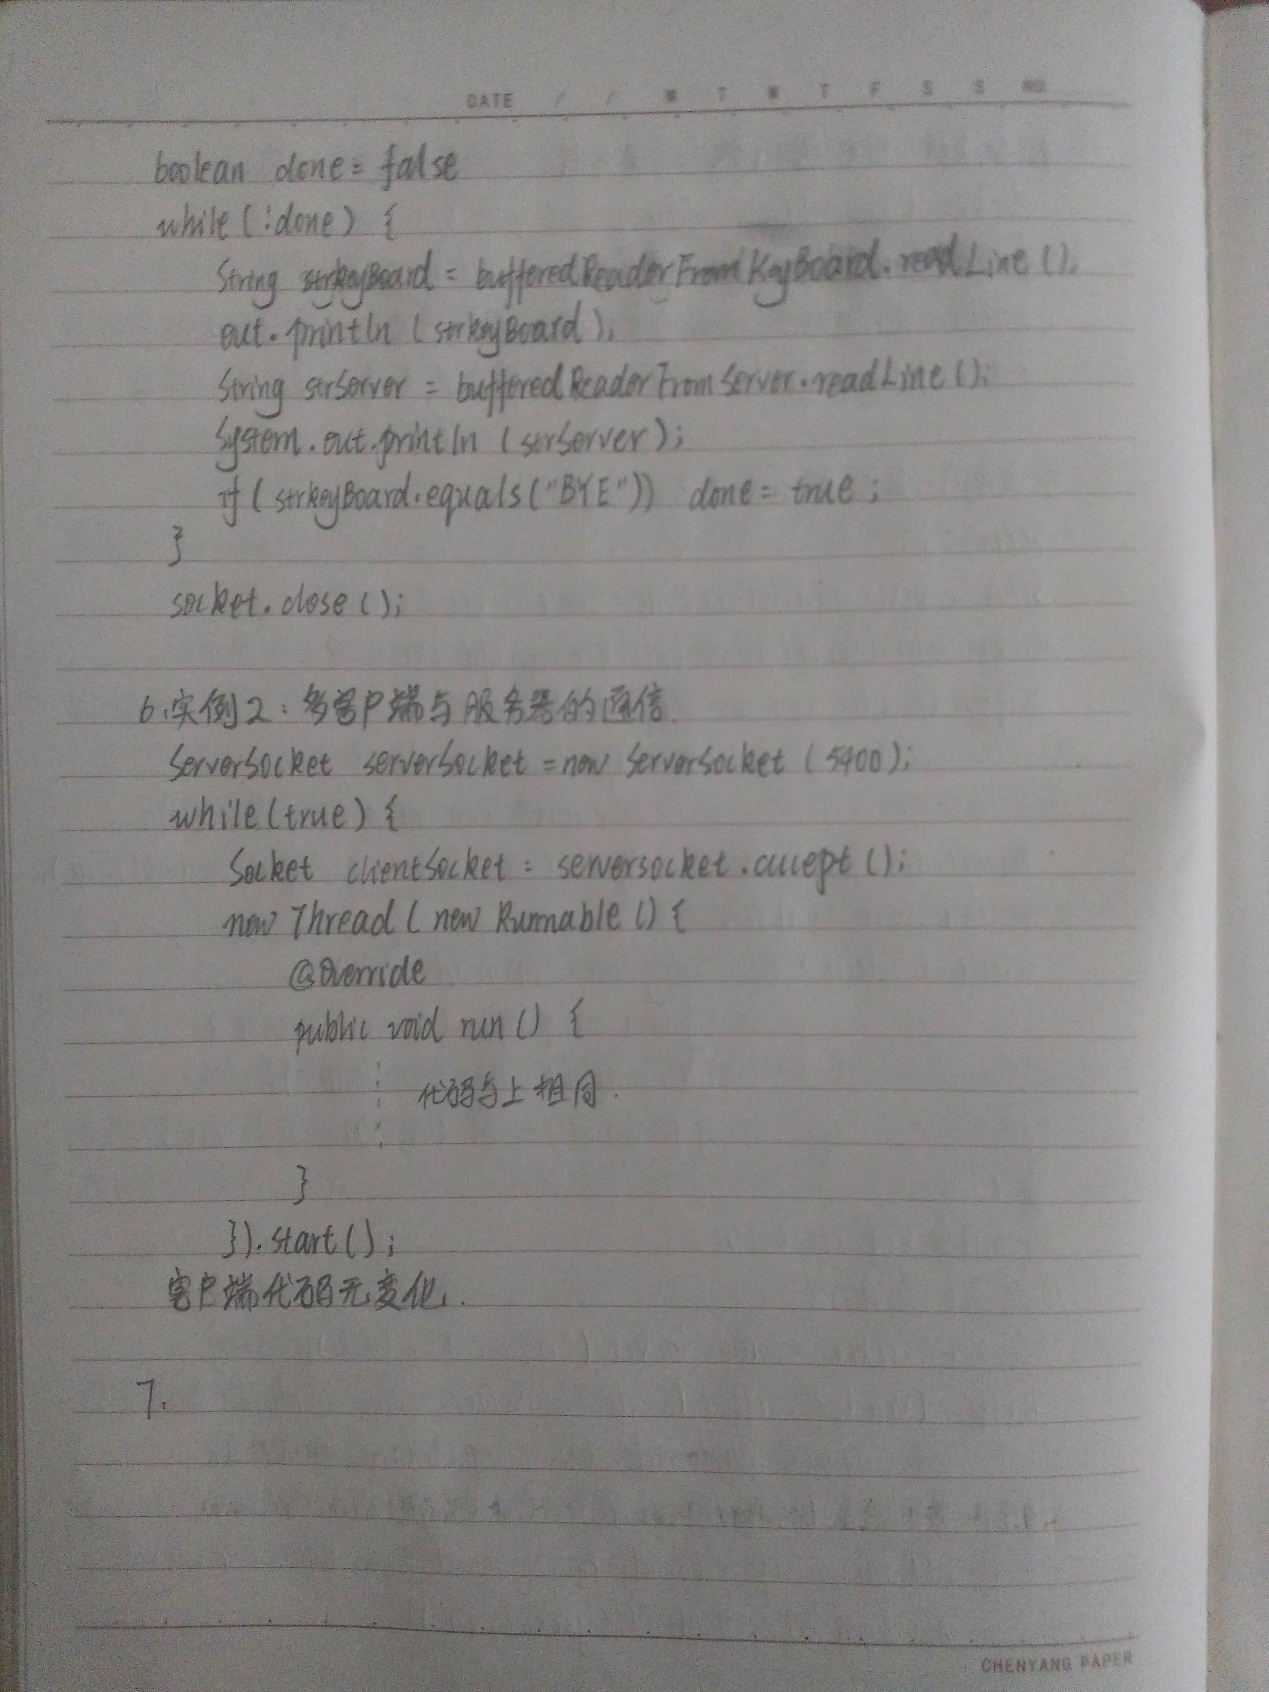 DATE / / M T W T F S S NO.
boolean done = false
while (!done) {
String strkeyBoard = bufferedReaderFromKeyBoard.readLine();
out.println (strkeyBoard);
String strServer = bufferedReaderFromServer.readLine();
System.out.println (strServer);
if (strkeyBoard.equals("BYE")) done = true;
}
socket.close();
6. 实例2: 多客户端与服务器的通信
ServerSocket serverSocket = new ServerSocket (5400);
while(true) {
Socket clientSocket = serversocket.accept();
new Thread ( new Runnable () {
@Override
public void run () {
⋮ 代码与上相同.
⋮
}
}).start();
客户端代码无变化.
7.
CHENYANG PAPER